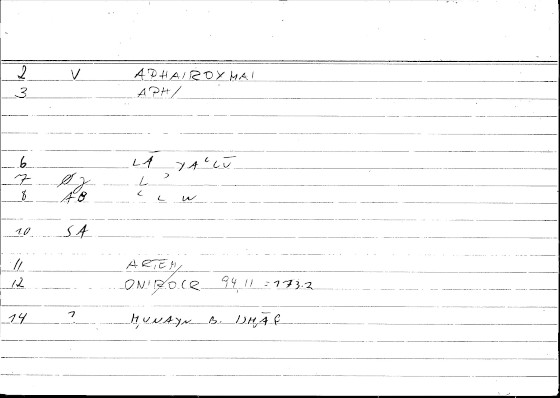 2 V APHAIROYMAI
3 APH/
6 LĀ YAʿLŪ
7 L ʾ
8 AB ʿ L W
10 SA
11 ARTEM/
12 ONIROCR 94,11 = 173.2
14 ? ḤUNAYN B. ISḤĀQ